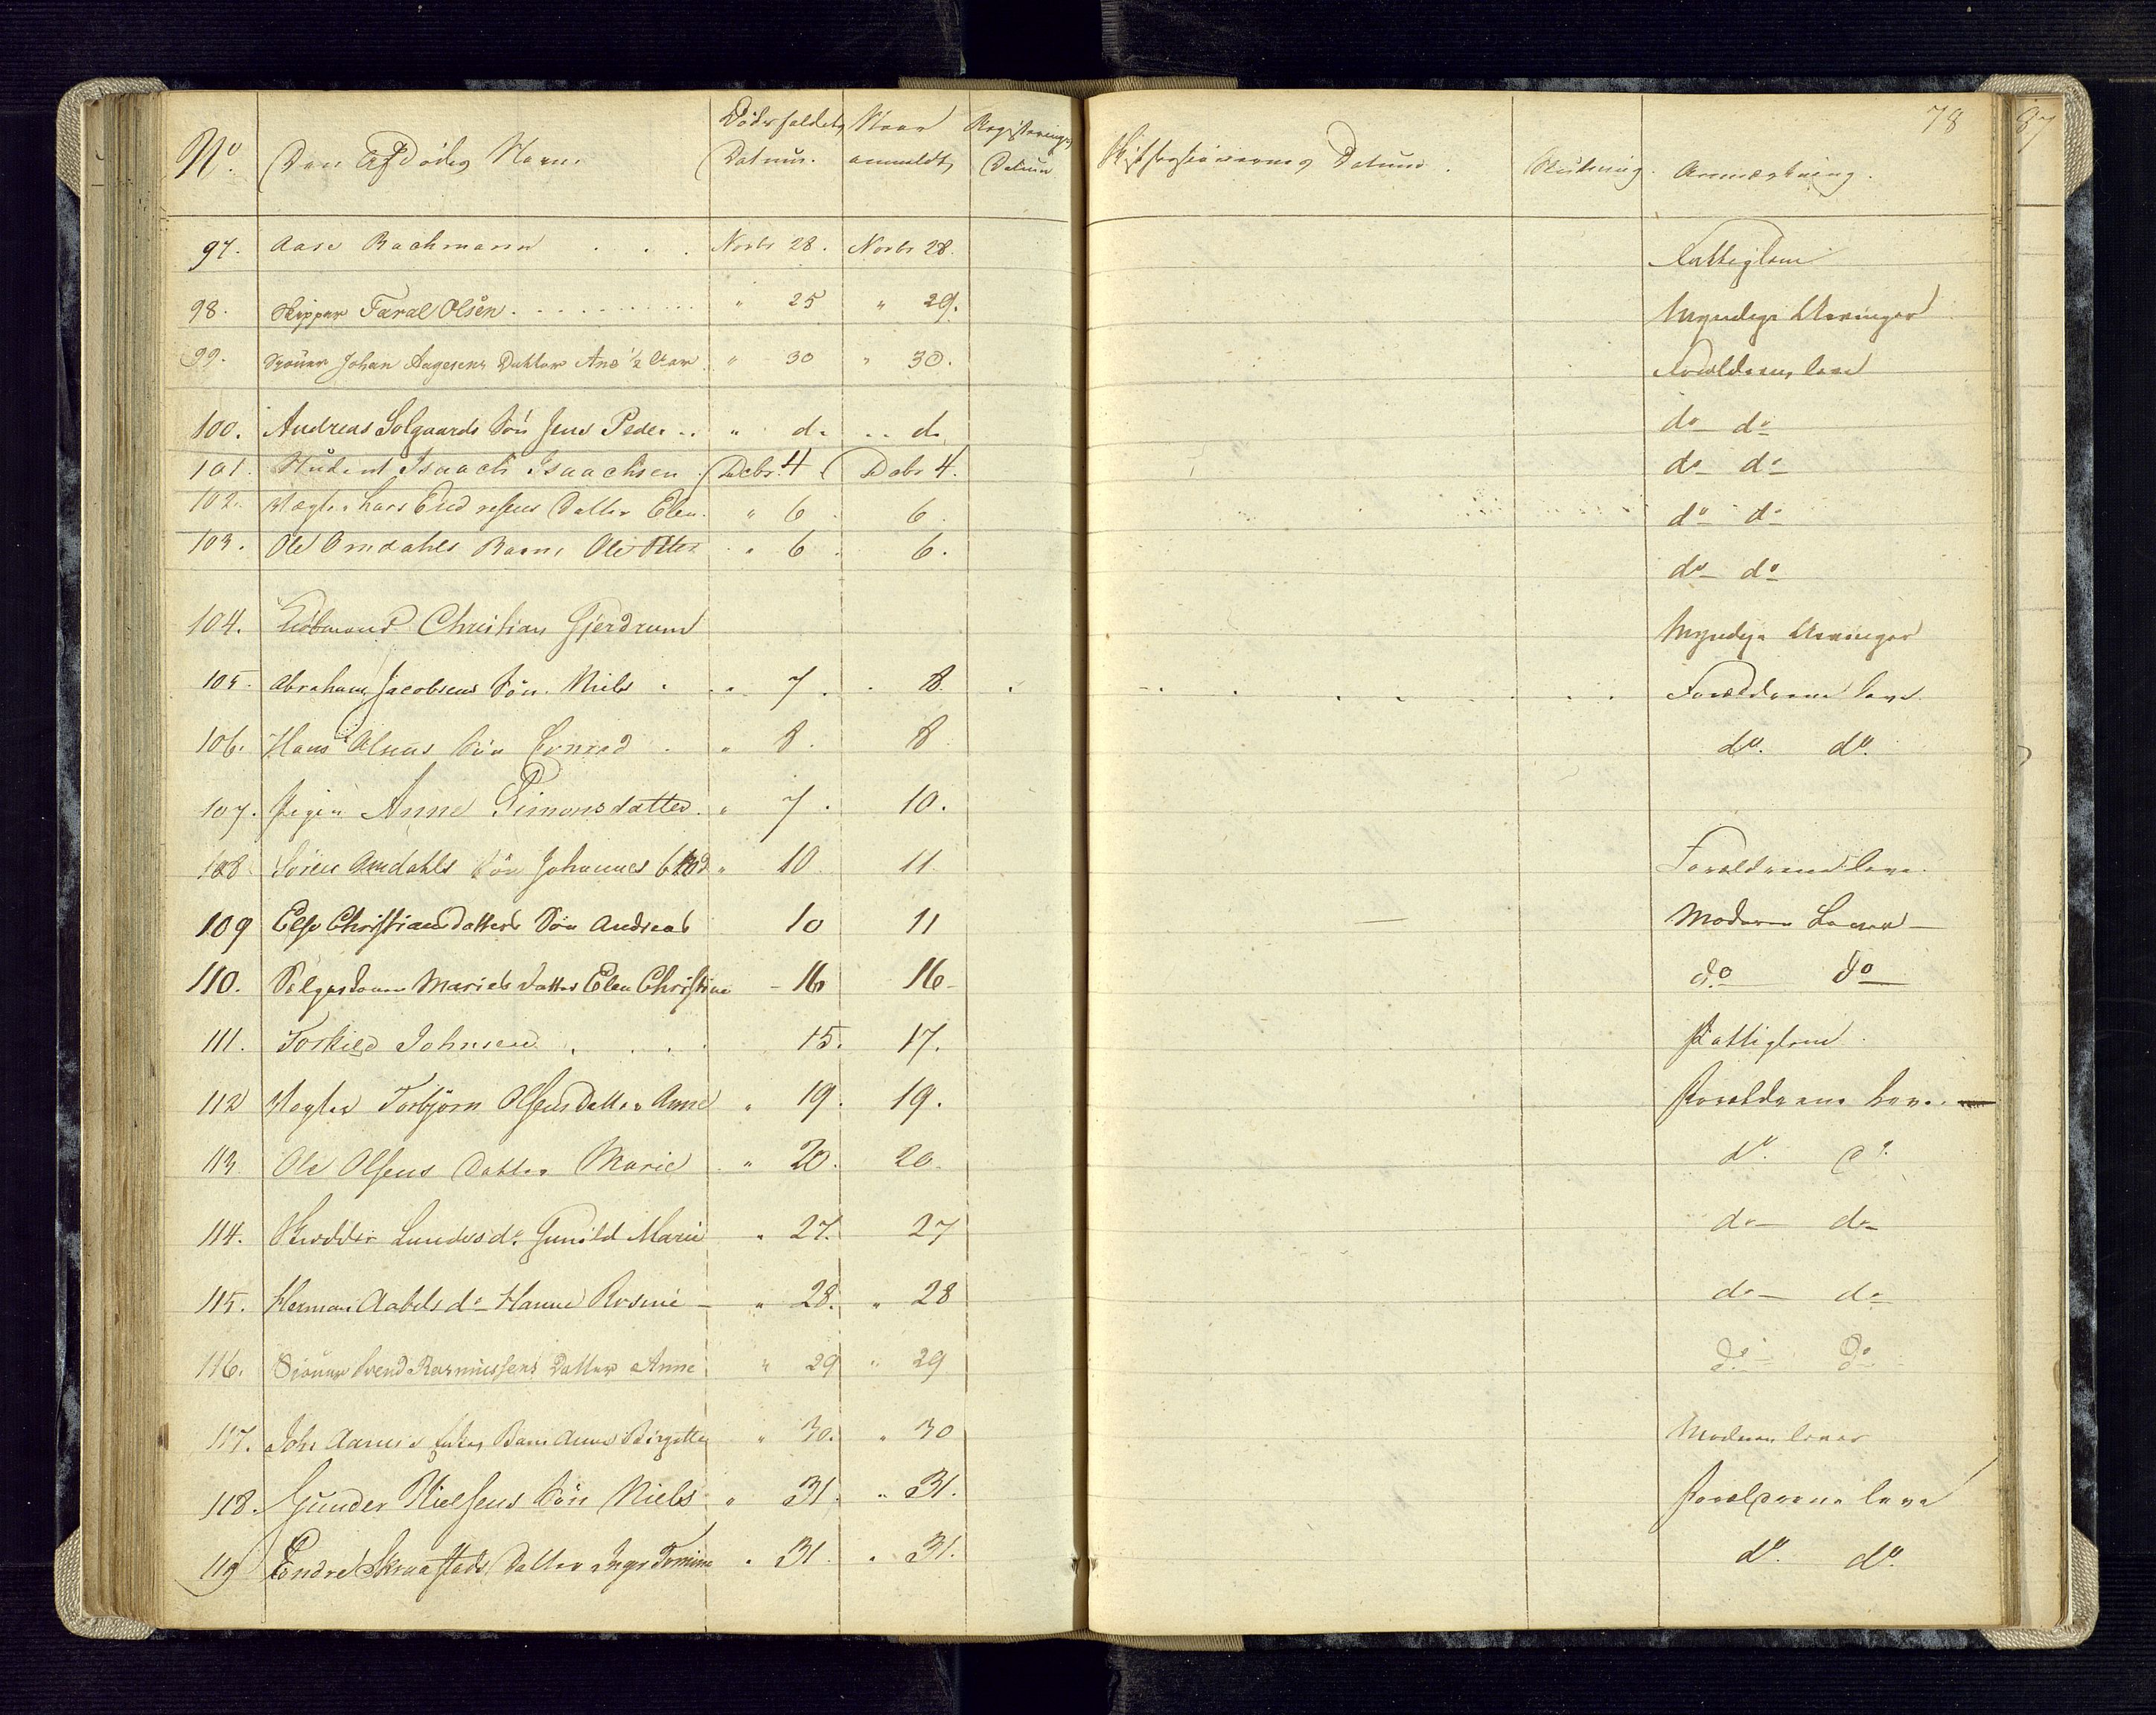 78
87
No. Den Afdødes Navn. Dødsfaldets Datum. Naar anmeldt, Registeringens Datum Skiftesessionernes Datum. Slutning. Anmærkning.
97. Aase Bachmann . . . Novbr 28. Novbr 28. Fattiglem
98. Skipper Taral Olsen . . . . . . . . . " 25 " 29. Myndige Arvinger
99. Johan Aagesens Datter Ane ½ Aar " 30 " 30. Forældrene leve
100. Andreas Solgaards Søn Jens Peder .. " do .. do do do
101. Student Isaach Isaachsen. Decbr. 4 Decbr 4. do do
102. Vægter Lars Endresens Datter Elen. " 6 6. do do
103. Ole Omdahls Barn, Ole " 6. 6. do do
104. Kiøbmand Christian Gjerdrum Myndige Arvinger
105. Abraham Jacobsens Søn Niels . " 7. 8. Forældrene leve
106. Hans Olsens Søn Conrad . " 8. 8 do. do.
107. Pigen Anne Simonsdatter. " 7. 10.
108 Søren Omdahls Søn Johannes " 10 11. Forældrene leve.
109 Else Christiansdatters Søn Andreas 10 11 — Moderen Lever —
110. Maries datter Elen Christine - 16 16- do do
111. Torkild Johnsen . . . . 15. 17. Fattiglem.
112 Vægter Torbjørn Olsens Datter Anne " 19. 19. Forældrene leve.
113. Ole Olsens Datter Marie " 20. 20. do. do.
114. Skrædder Lundes do Gunild Marie " 27. 27 do do
115. Herman Aabels do Hanne Rosine — " 28. " 28 do do
116. Svend Rasmussens Datter Anne " 29 " 29 do do
117. Joh: Barn Anne Birgitte " 30. " 30 Moderen lever
118. Gunder Nielsens Søn Niels " 31. " 31. Forældrene leve
119 Endre Skraastads Datter Inger Tomine " 31. " 31. do. do.